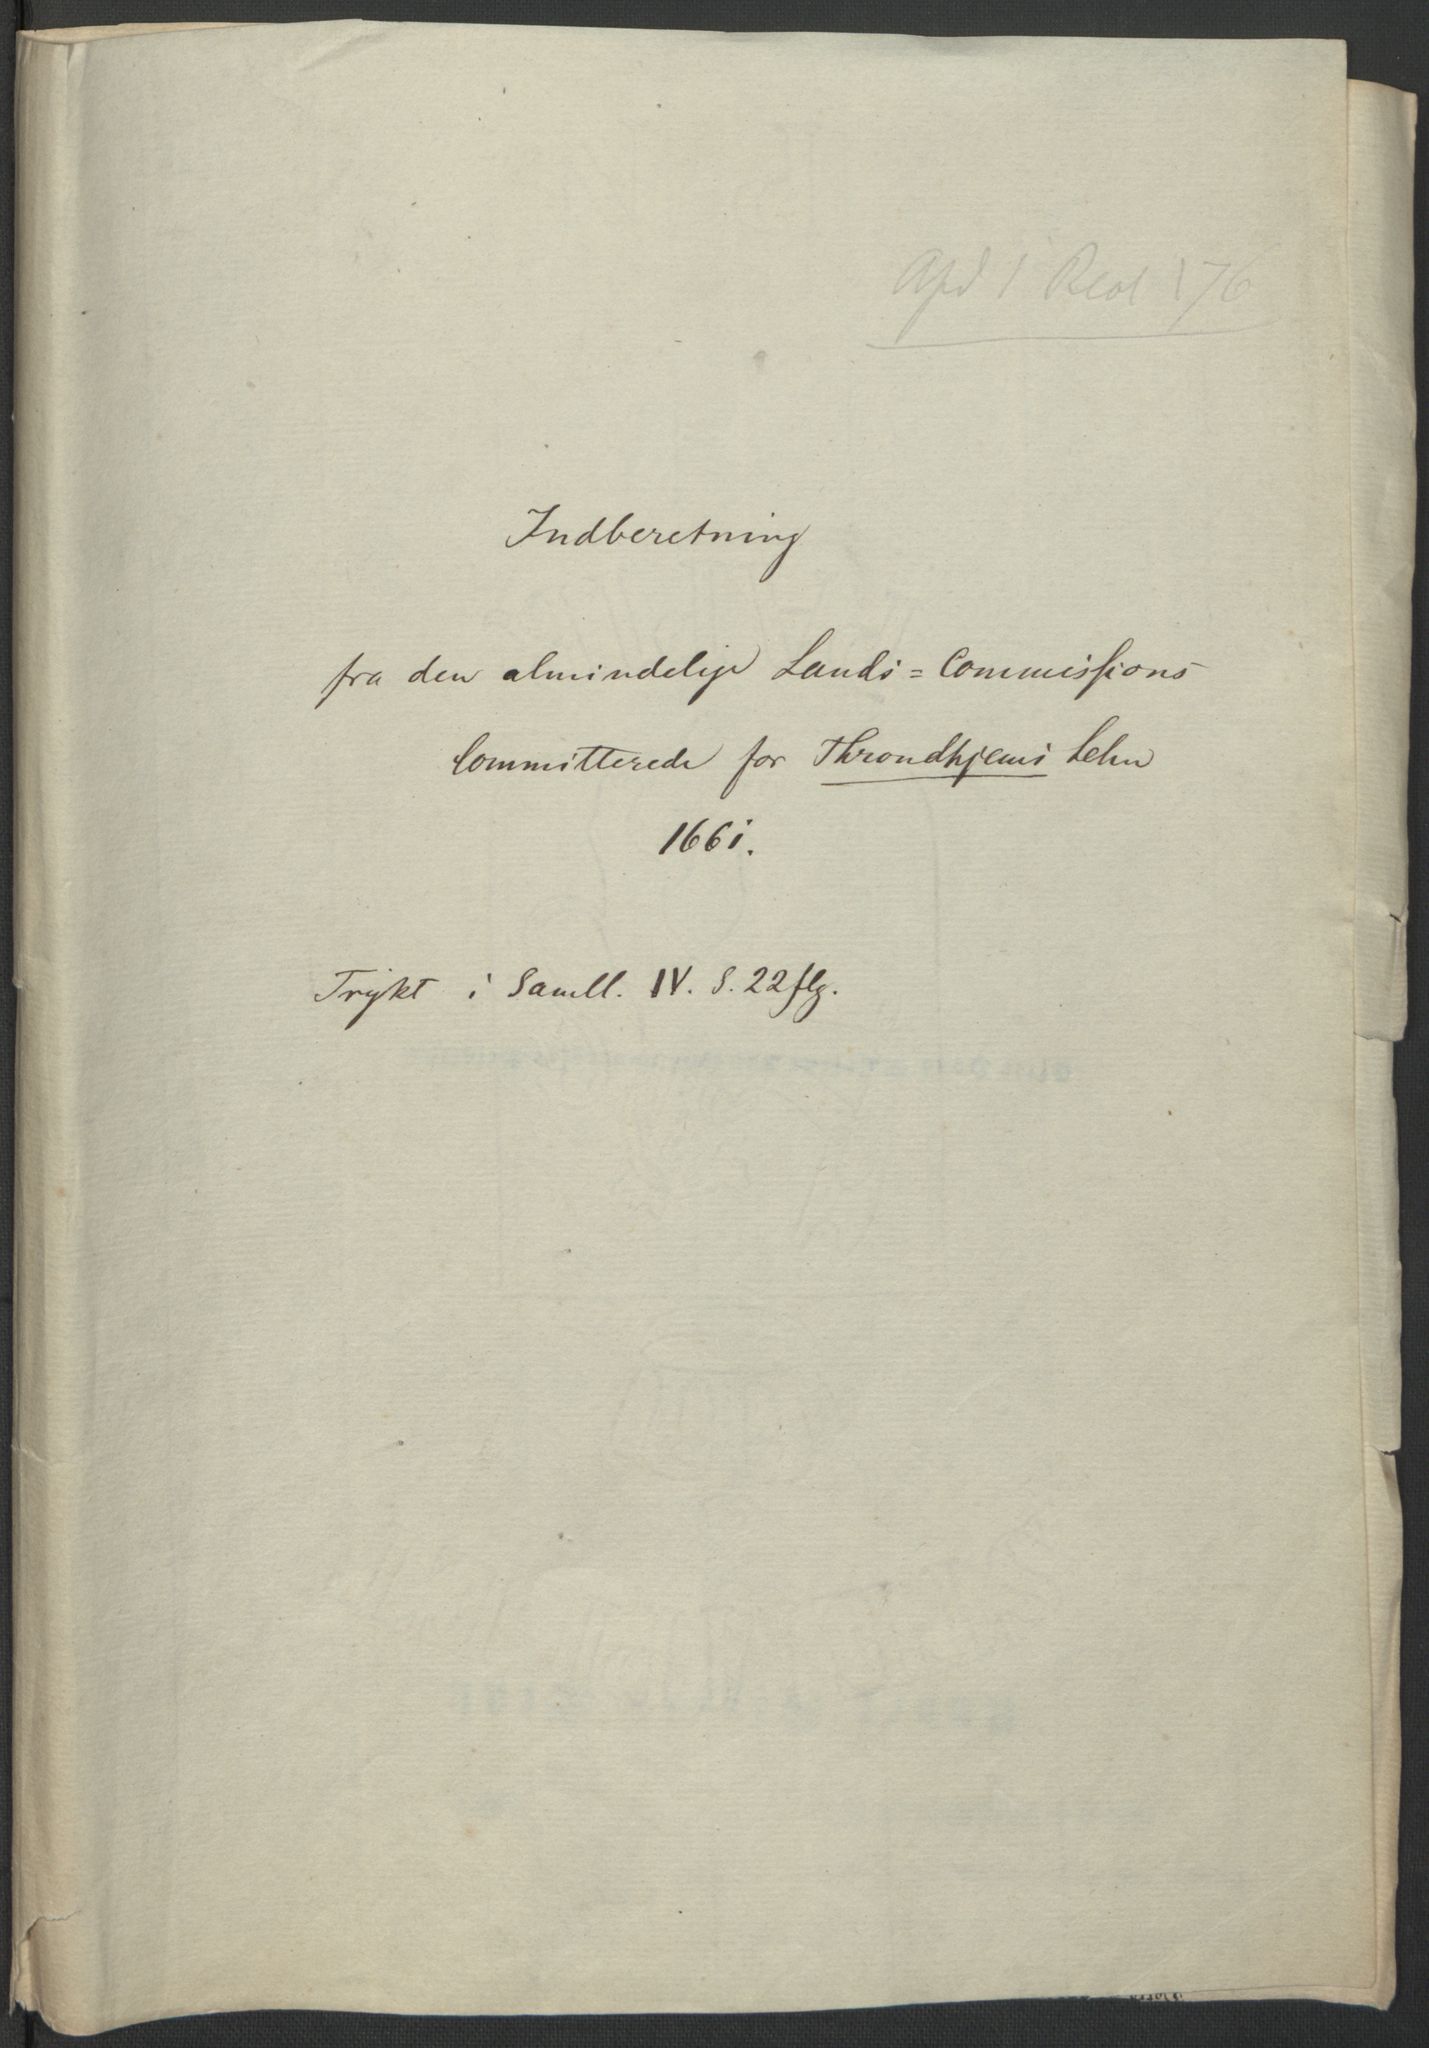 Indberetning
fra den almindelige Lands=Commissions
Committerede for Throndhjems Lehn
1661.
Trykt i Samll. IV. S. 22 flg.